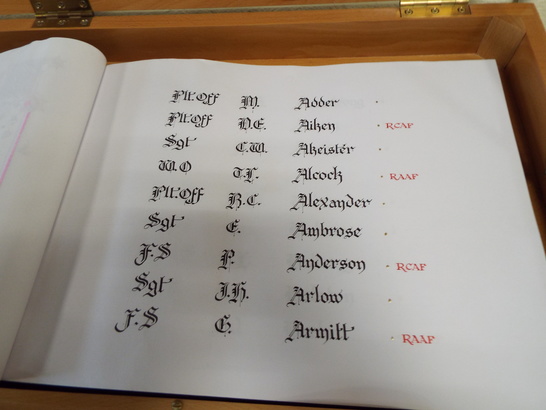 Plt. Off M. Adder
Plt. Off D.E. Aiken RCAF
Sgt C.W. Akeister
W.O T.L. Alcock RAAF
Plt. Off R.C. Alexander
Sgt E. Ambrose
F.S P. Anderson RCAF
Sgt J.H. Arlow
F.S G. Armitt RAAF